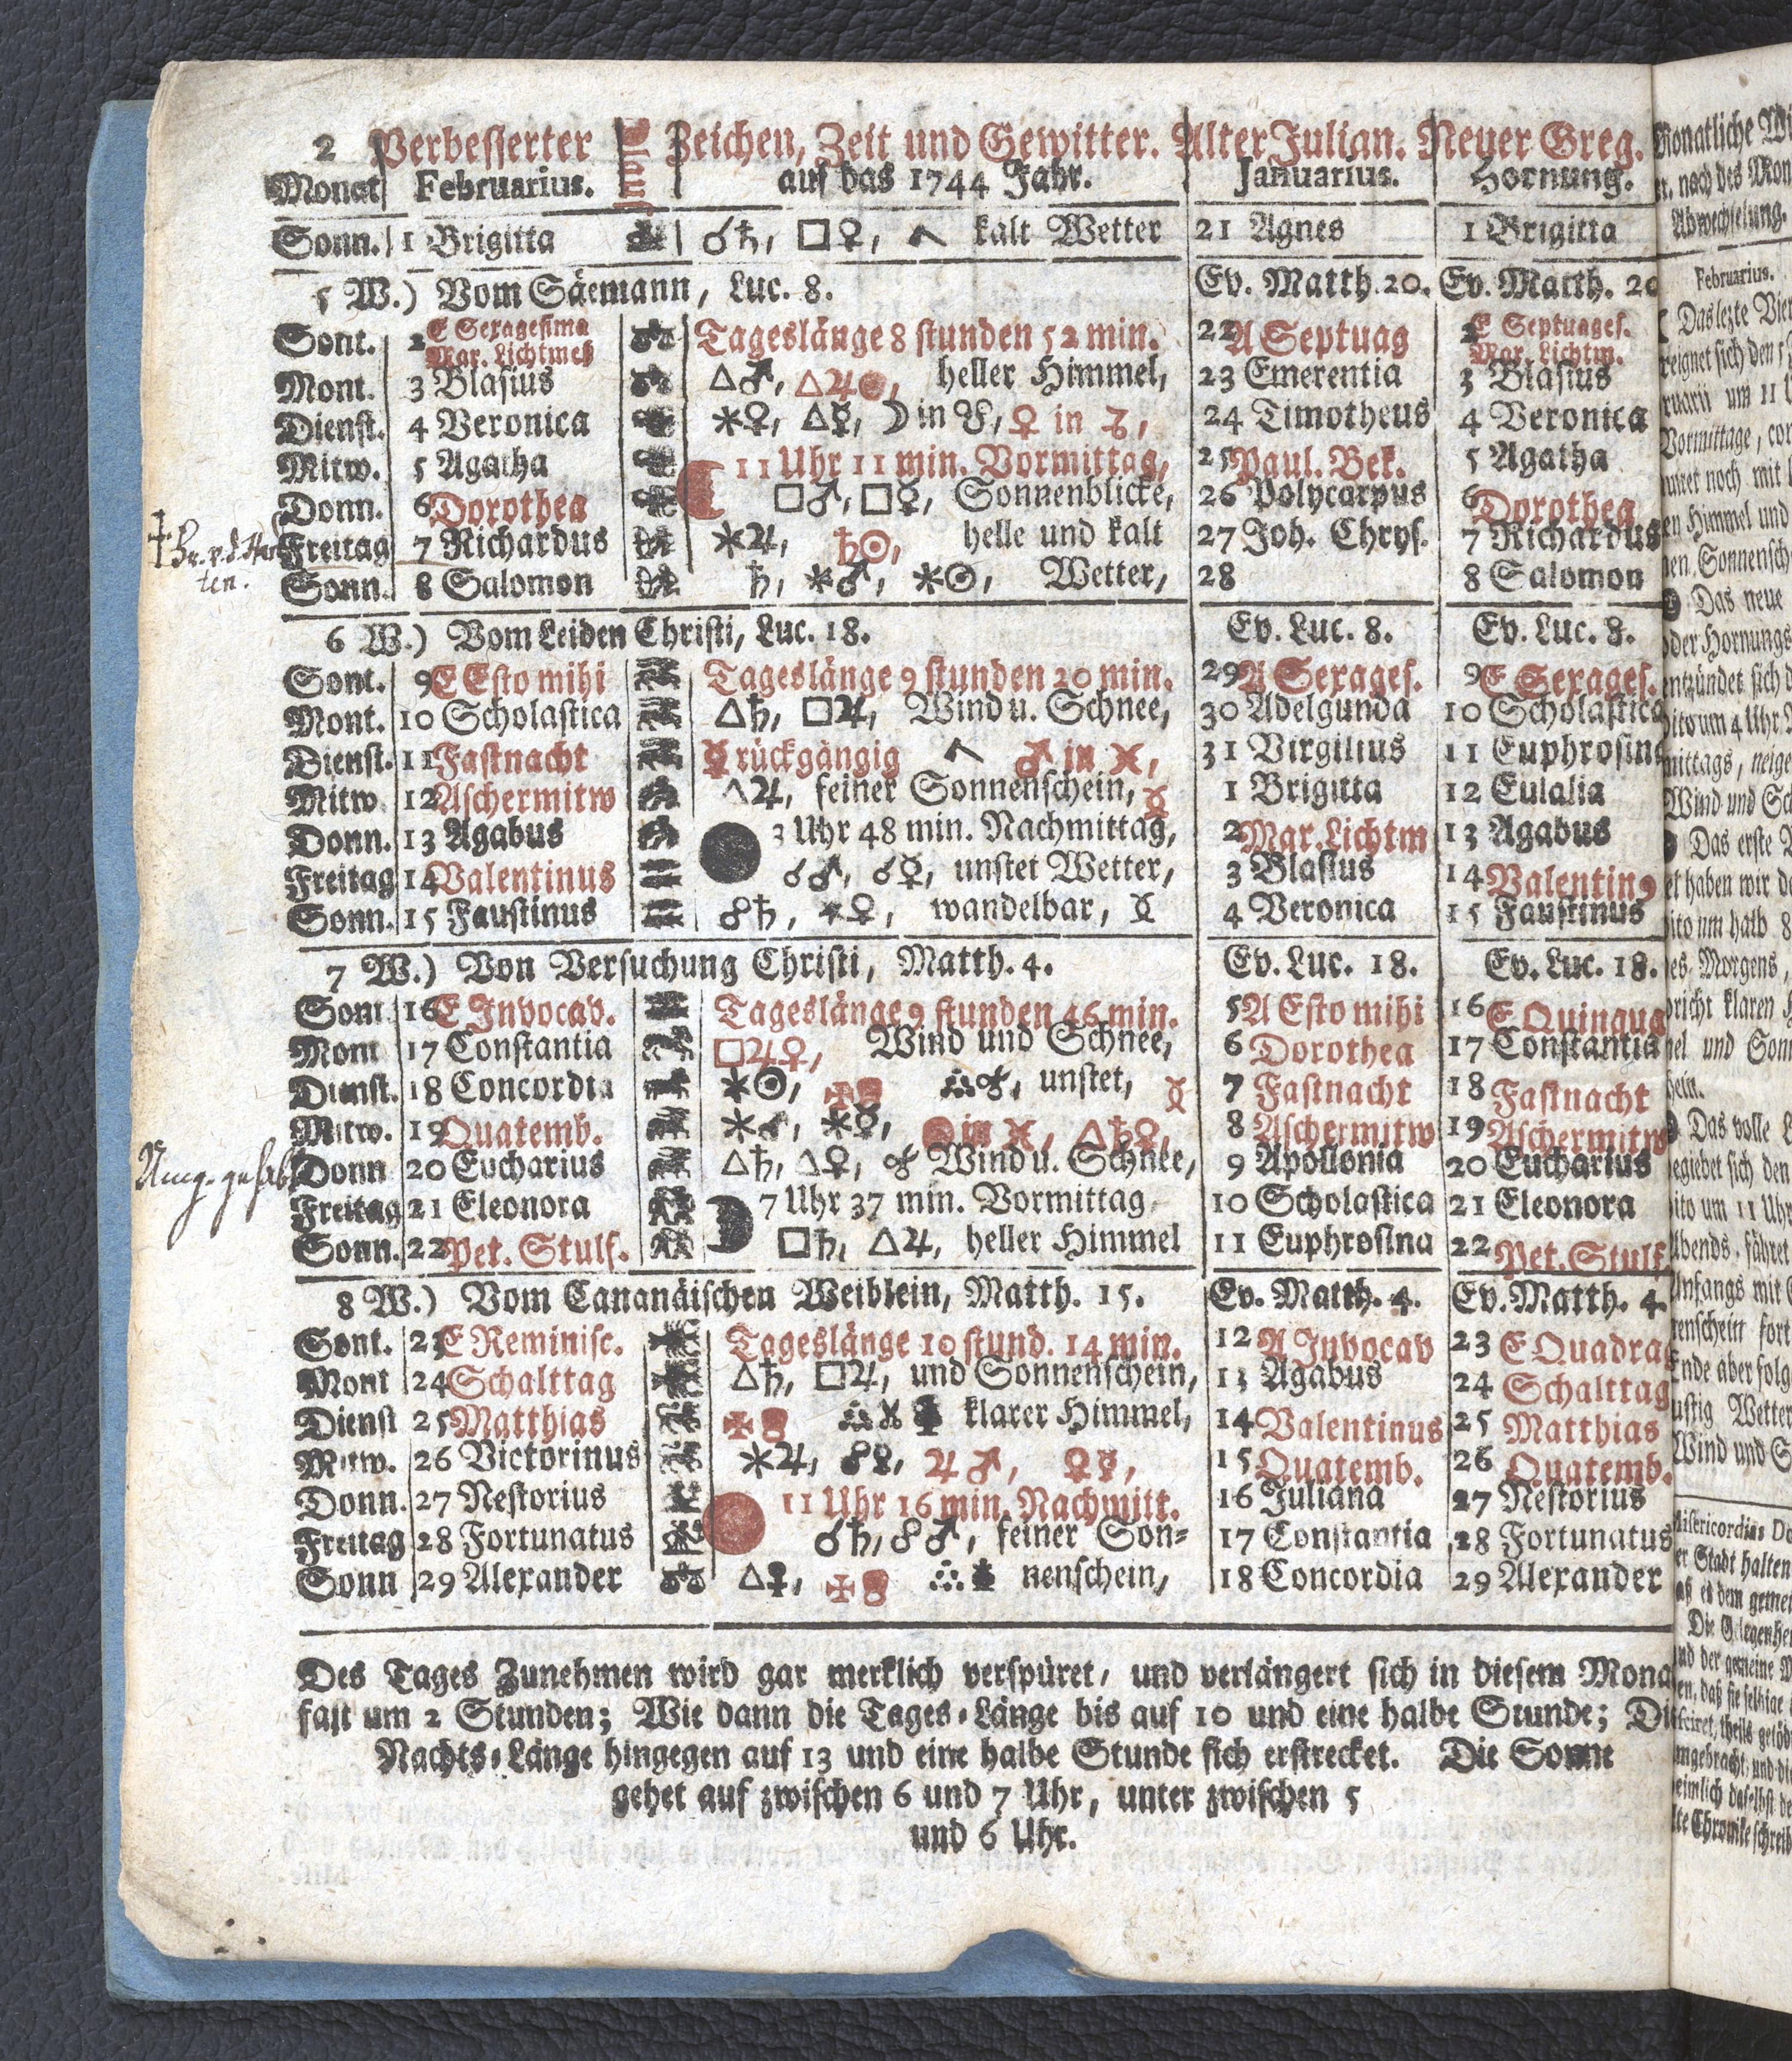 2 Verbesserter Zeichen, Zeit und Gewitter. Alter Julian. Neuer Greg.
Monat Februarius. auf das 1744 Jahr. Januarius. Hornung.
Sonn. 1 Brigitta ☌♄, □♀, kalt Wetter 21 Agnes 1 Brigitta
5 W.) Vom Säemann, Luc. 8. Ev. Matth. 20. Ev. Matth. 20
Sont. 2 E Sexagesima Mar. Lichtmeß Tageslänge 8 stunden 52 min. 22 A Septuag 2 E Septuages. Mar. Lichtm.
Mont. 3 Blasius △♂, △♃ heller Himmel, 23 Emerentia 3 Blasius
Dienst. 4 Veronica ⚹♀, △☿, ☽ in ♉, ♀ in ♑, 24 Timotheus 4 Veronica
Mitw. 5 Agatha 11 Uhr 11 min. Vormittag, 25 Paul. Bek. 5 Agatha
Donn. 6 Dorothea □♂, □☿, Sonnenblicke, 26 Polycarpus 6 Dorothea
Freitag 7 Richardus ⚹♃, ♄☉, helle und kalt 27 Joh. Chrys. 7 Richardus
Sonn. 8 Salomon ♄, ⚹♂, ⚹☉, Wetter, 28 8 Salomon
6 W.) Vom Leiden Christi, Luc. 18. Ev. Luc. 8. Ev. Luc. 8.
Sont. 9 E Esto mihi Tageslänge 9 stunden 20 min. 29 A Sexages. 9 E Sexages.
Mont. 10 Scholastica △♄, □♃, Wind u. Schnee, 30 Adelgunda 10 Scholastica
Dienst. 11 Fastnacht ☿ rückgängig ♂ in ♓, 31 Virgilius 11 Euphrosina
Mitw. 12 Aschermitw △♃, feiner Sonnenschein, 1 Brigitta 12 Eulalia
Donn. 13 Agabus 3 Uhr 48 min. Nachmittag, 2 Mar. Lichtm 13 Agabus
Freitag 14 Valentinus ☌♂, ☌☿, unstet Wetter, 3 Blasius 14 Valentin9
Sonn. 15 Faustinus ☍♄, ⚹♀, wandelbar, 4 Veronica 15 Faustinus
7 W.) Von Versuchung Christi, Matth. 4. Ev. Luc. 18. Ev. Luc. 18.
Sont 16 E Invocav. Tageslänge 9 stunden 46 min. 5 A Esto mihi 16 E Quinqua
Mont 17 Constantia □♃♀, Wind und Schnee, 6 Dorothea 17 Constantia
Dienst. 18 Concordia ⚹☉, unstet, 7 Fastnacht 18 Fastnacht
Mitw. 19 Quatemb. ⚹♂, ⚹☿, in ♓, △♄♀, 8 Aschermitw 19 Aschermitw
Donn 20 Eucharius △♄, △♀, Wind u. Schnee, 9 Apollonia 20 Eucharius
Freitag 21 Eleonora 7 Uhr 37 min. Vormittag 10 Scholastica 21 Eleonora
Sonn. 22 Pet. Stulf. □♄, △♃, heller Himmel 11 Euphrosina 22 Pet. Stulf.
8 W.) Vom Cananäischen Weiblein, Matth. 15. Ev. Matth. 4. Ev. Matth. 4.
Sont. 23 E Reminisc. Tageslänge 10 stund. 14 min. 12 A Invocav 23 E Quadrag
Mont 24 Schalttag △♄, □♃, und Sonnenschein, 13 Agabus 24 Schalttag
Dienst 25 Matthias klarer Himmel, 14 Valentinus 25 Matthias
Mitw. 26 Victorinus ⚹♃, ♃♂, ♀☿, 15 Quatemb. 26 Quatemb.
Donn. 27 Nestorius 11 Uhr 16 min. Nachmitt. 16 Juliana 27 Nestorius
Freitag 28 Fortunatus ☌♄, ☍♂, feiner Son= 17 Constantia 28 Fortunatus
Sonn 29 Alexander nenschein, 18 Concordia 29 Alexander
Des Tages Zunehmen wird gar merklich verspüret, und verlängert sich in diesem Mona
fast um 2 Stunden; Wie dann die Tages-Länge bis auf 10 und eine halbe Stunde; Di
Nachts-Länge hingegen auf 13 und eine halbe Stunde sich erstrecket. Die Sonne
gehet auf zwischen 6 und 7 Uhr, unter zwischen 5
und 6 Uhr.
Monatliche
nach des
Abwechselung.
Februarius.
Das lezte
ereignet sich den
um 11
Vormittage,
noch mit
Himmel und
Das neue
oder Hornungs
entzündet sich
um 4 Uhr
mittags, neige
Wind und
Das erste
haben wir
um halb 8
Morgens,
klaren
und
Das volle
begiebet sich den
um 11 Uhr
Abends, fähret
Anfangs mit
fort
Ende aber folg
Wetter
Wind und
Misericordias
Stadt halten
dem
Die Gelegenhe
und der gemeine